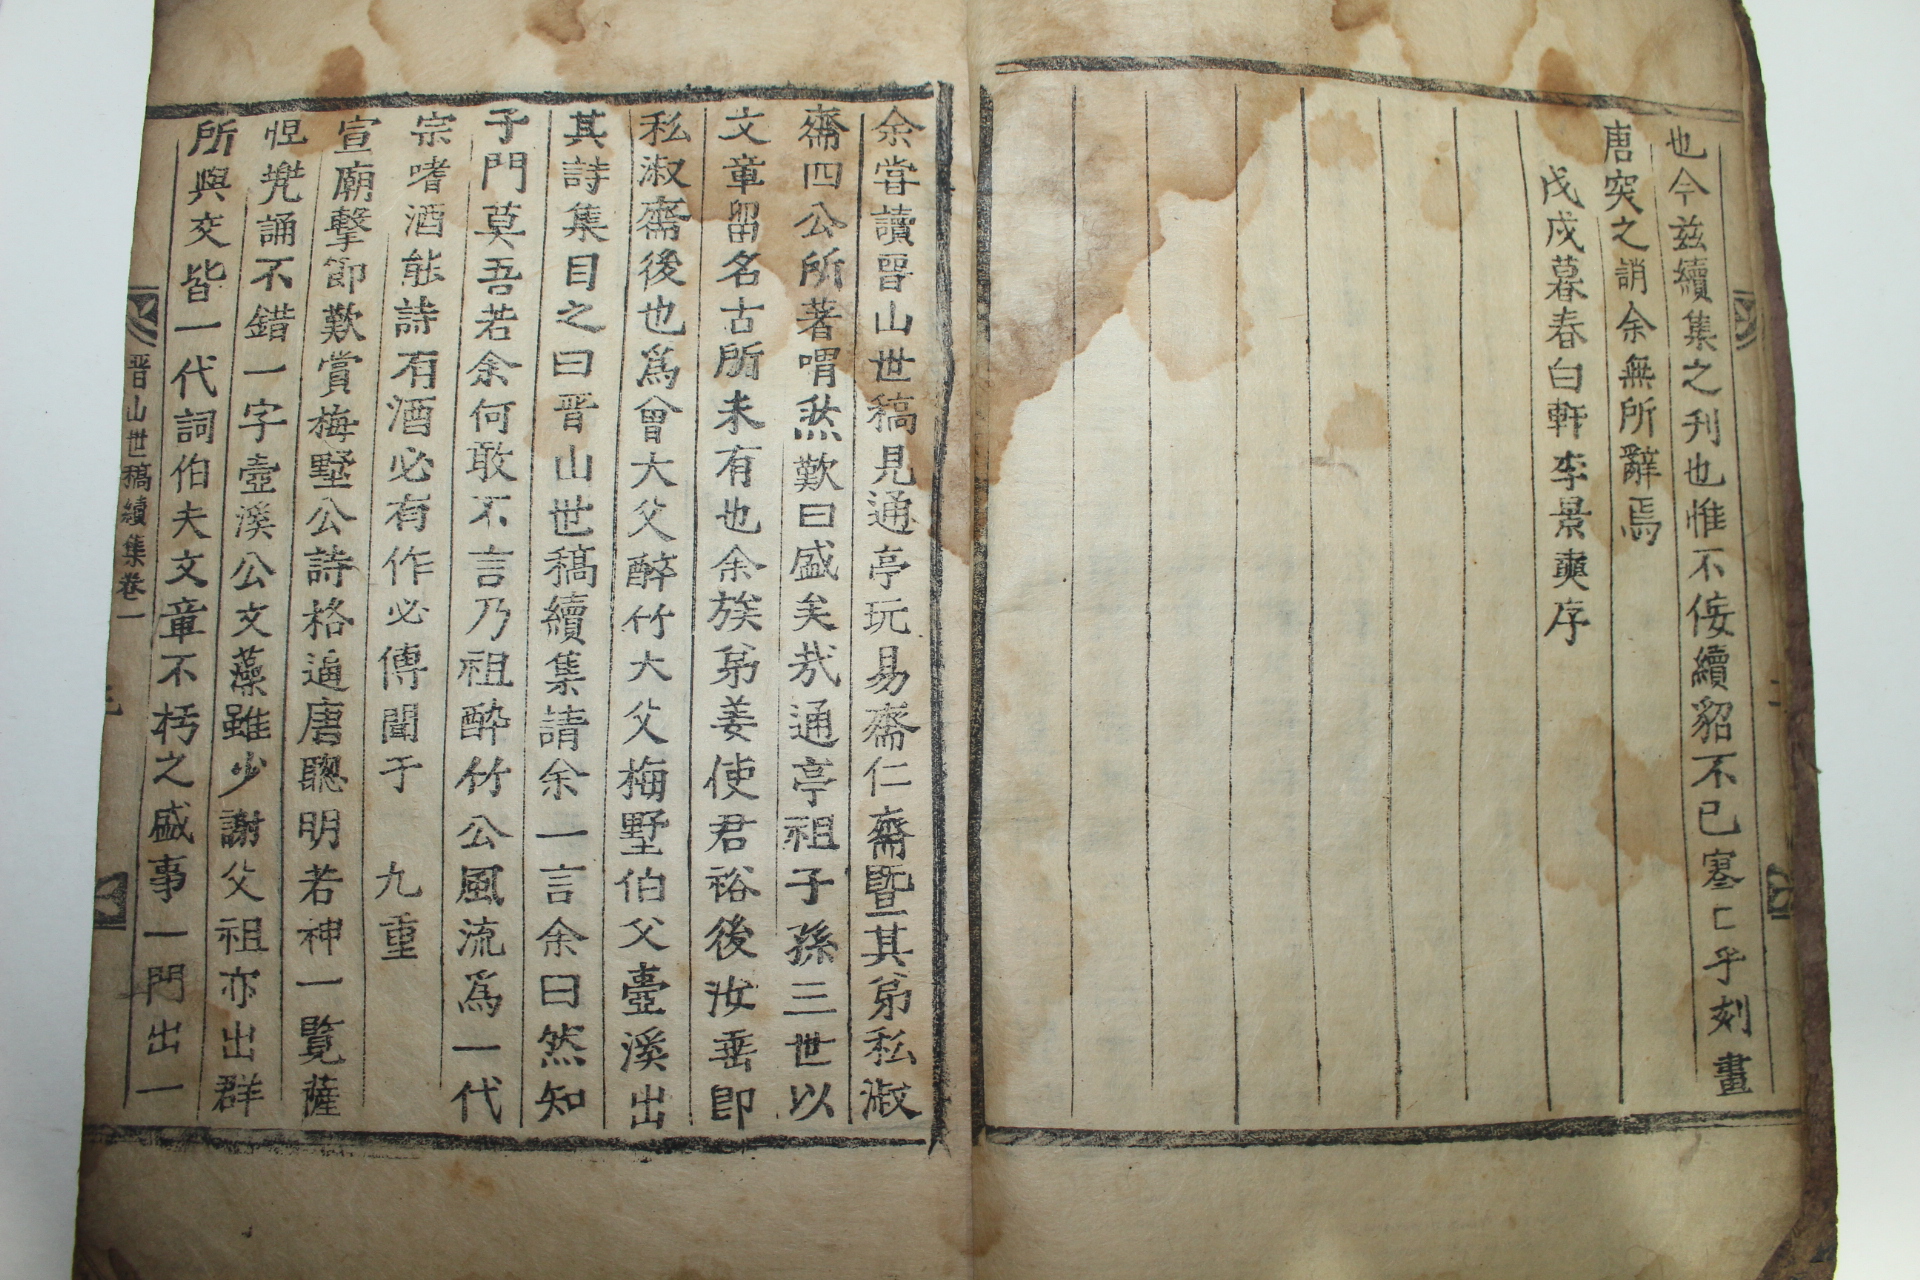 也今茲續集之刋也惟不侫續貂不已寔亡乎刻畫
唐突之誚余無所辭焉
戊戌暮春白軒李景奭序
余嘗讀晋山世稿見通亭玩易齋仁齋曁其弟私淑
齋四公所著喟然歎曰盛矣㢤通亭祖子孫三世以
文章留名古所未有也余族弟姜使君裕後汝垂卽
私淑齋後也爲曾大父醉竹大父梅墅伯父壼溪出
其詩集目之曰晋山世稿續集請余一言余曰然知
子門莫吾若余何敢不言乃祖醉竹公風流爲一代
宗嗜酒能詩有酒必有作必傳聞于 九重
宣廟擊節歎賞梅墅公詩格逼唐聰明若神一覽薩
怛㲦誦不錯一字壼溪公文藻雖少謝父祖亦出群
所與交皆一代詞伯夫文章不朽之盛事一門出一
晋山世稿續集卷一